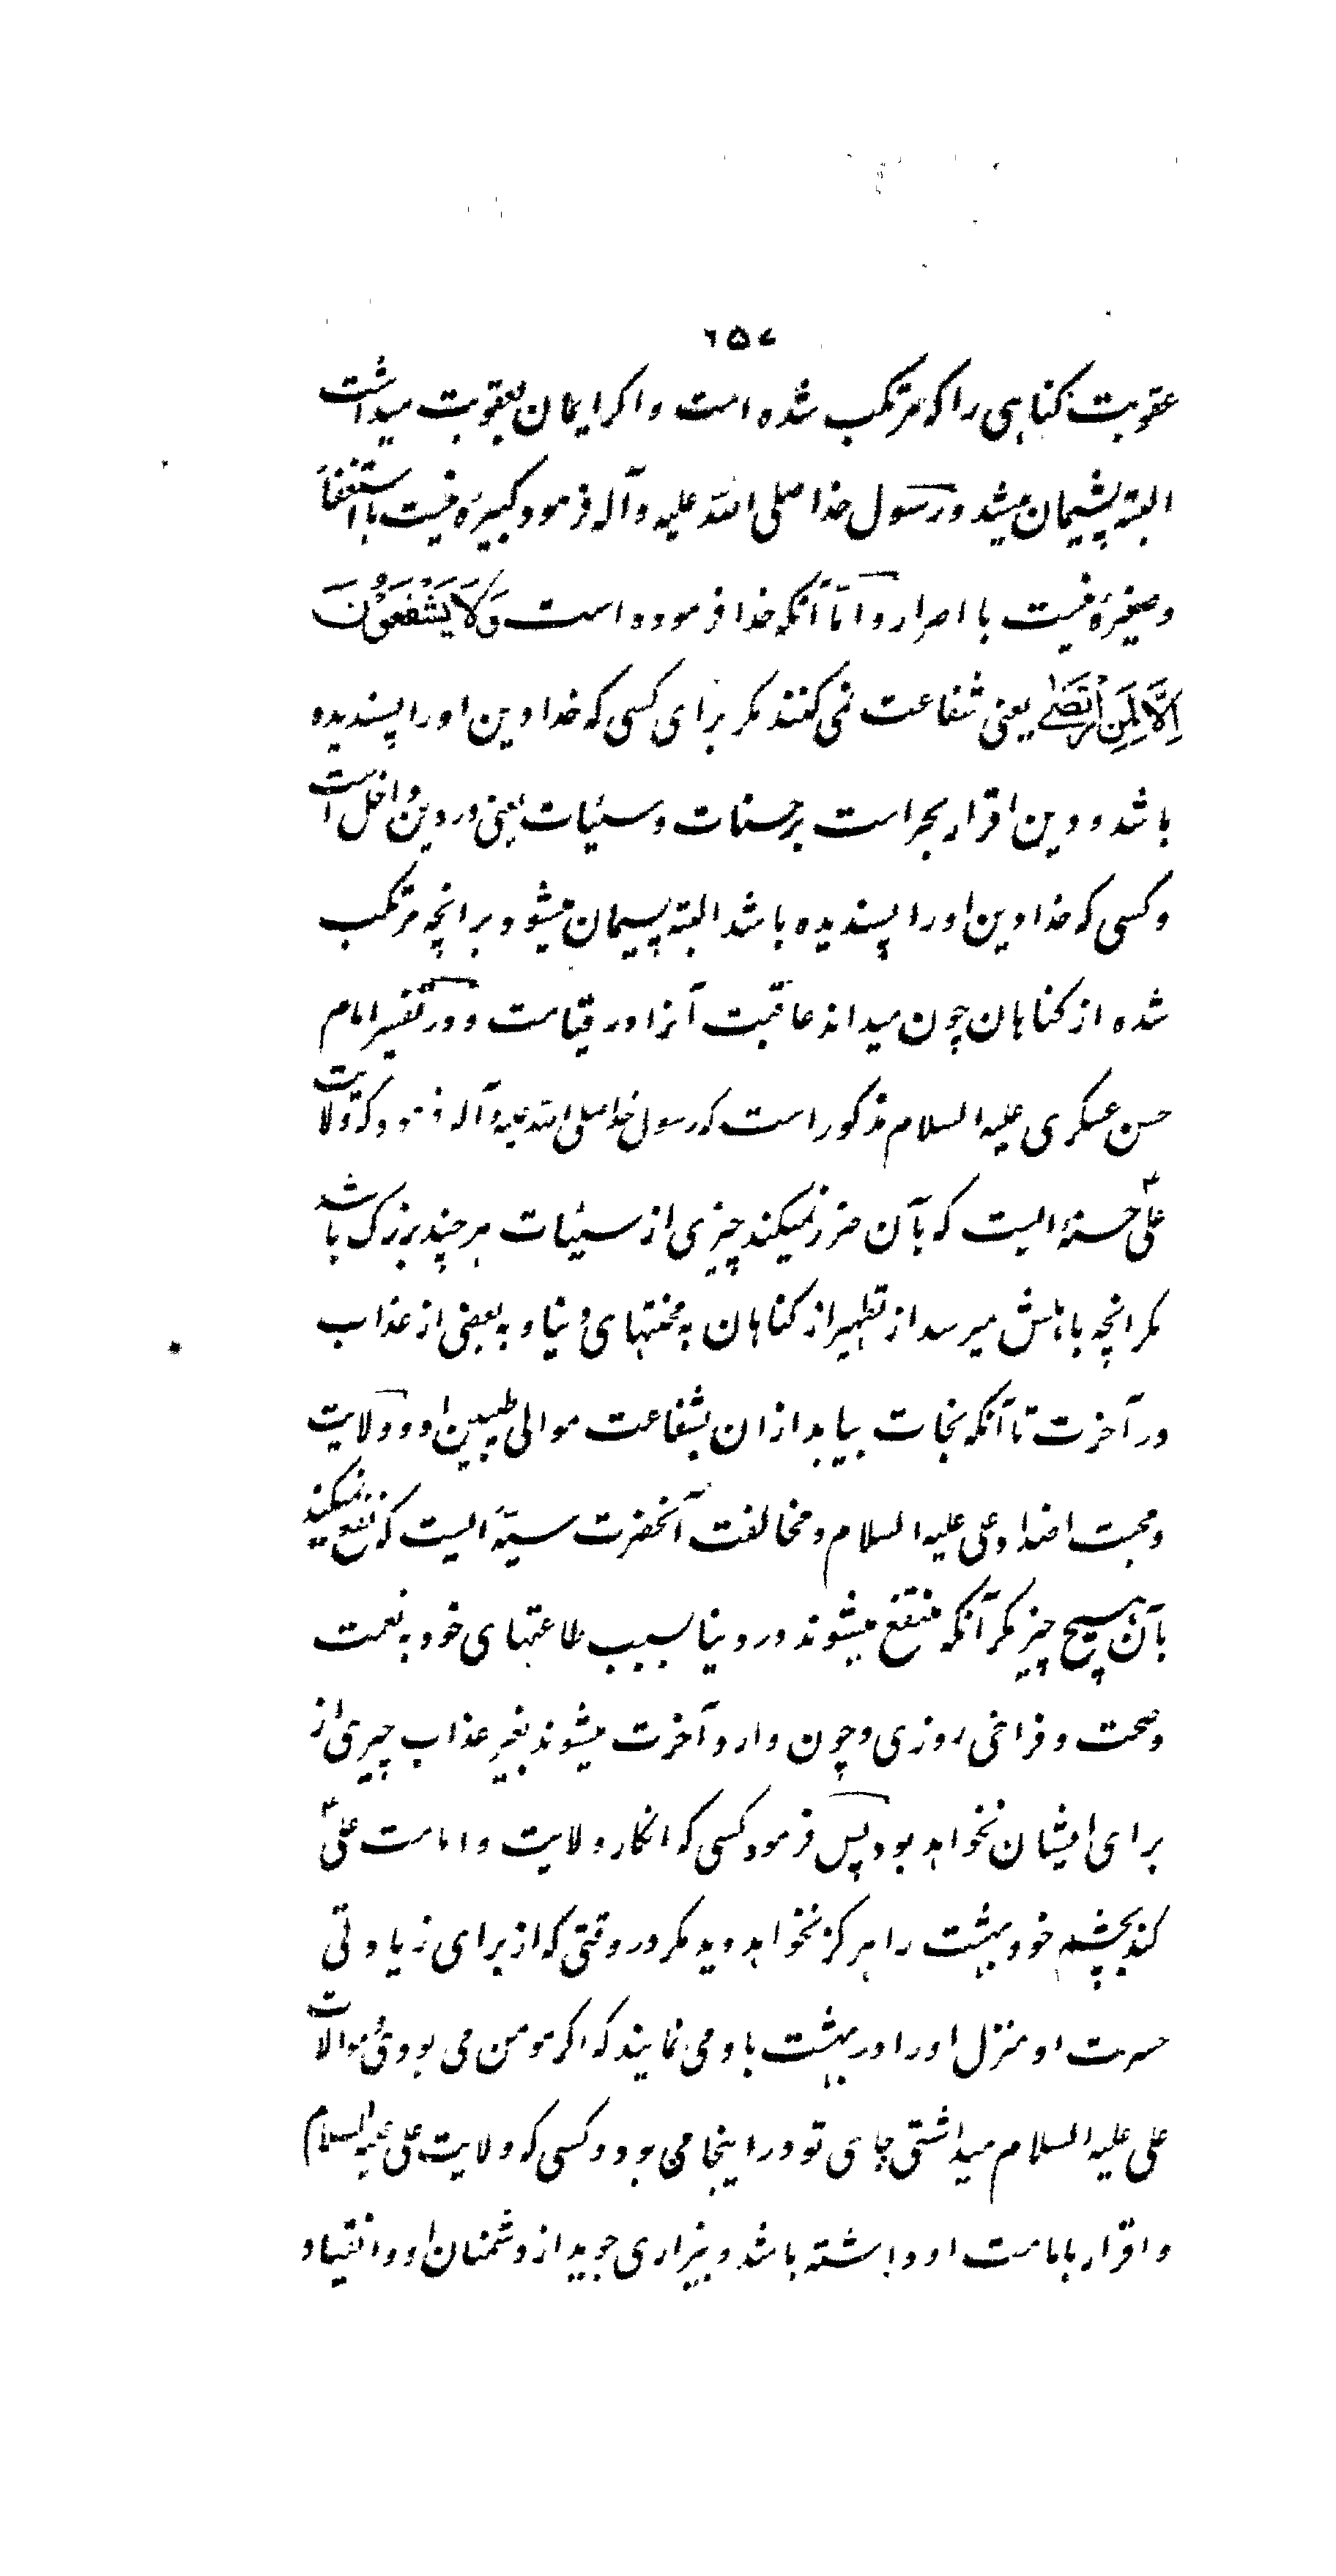 ٦٥٧
عقوبت کناهی را که مرتکب شده است و اکر ایمان بعقوبت میداشت
البته پشیمان میشد و رسول خدا صلی الله علیه و آله فرمود کبیرهٔ نیست با استغفار
و صغیرهٔ نیست با اصرار و امّا آنکه خدا فرموده است وَلَا یَشْفَعُوْنَ
اِلَّا لِمَنِ ارْتَضٰی یعنی شفاعت نمی کنند مکر برای کسی که خدا دین او را پسندیده
باشد و دین اقرار بجزاست بر حسنات و سیئات یعنی در دین داخل است
و کسی که خدا دین او را پسندیده باشد البته پسیمان میشود بر انچه مرتکب
شده از کناهان چون میداند عاقبت آنرا در قیامت و در تفسیر امام
حسن عسکری علیه السلام مذکور است که رسول خدا صلی الله علیه و آله فرمود که ولایت
علیؑ حسنهٔ ایست که بآن ضرر نمیکند چیزی از سیئات هر چند بزرک باشد
مکر انچه باهلش میرسد از تطهیر از کناهان به محنتهای دنیا و به بعضی از عذاب
در آخرت تا آنکه نجات بیابد ازان بشفاعت موالی طیبین او و ولایت
و محبت اضداد علی علیه السلام و مخالفت آنحضرت سیّئهٔ ایست که نفع نمیکند
بآن هیچ چیز مکر آنکه منتفع میشوند در دنیا بسبب طاعتهای خود به نعمت
و صحت و فراخی روزی و چون وارد آخرت میشوند بغیر عذاب چیزی از
برای ایشان نخواهد بود پس فرمود کسی که انکار ولایت و امامت علیؑ
کند بچشم خود بهشت را هرکز نخواهد دید مکر در وقتی که از برای زیادتی
حسرت او منزل او را در بهشت باو می نمایند که اکر مومن می بودی و موالات
علی علیه السلام میداشتی جای تو در اینجا می بود و کسی که ولایت علی علیه السلام
و اقرار بامامت او داشته باشد و بیزاری جوید از دشمنان او و انقیاد